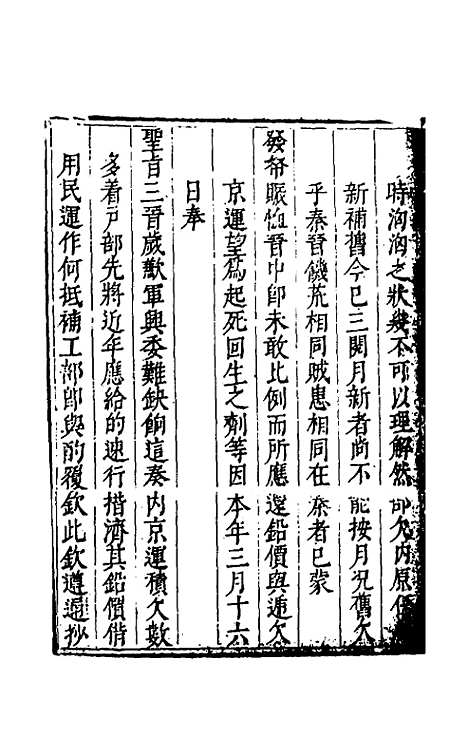 時洶洶之狀幾不可以理解然部欠内原任
新補舊今已三閱月新者尚不能按月况舊欠
乎秦晉饑荒相同賊患相同在秦者已蒙
發帑賑恤晉中卽未敢比例而所應還鉛價與逓欠
京運望爲起死回生之劑等因本年三月十六
日奉
聖旨三晉歲歉軍興委難缺餉這奏内京運積欠數
多着戸部先將近年應給的速行措濟其鉛價偹
用民運作何抵補工部卽與酌覆欽此欽遵逓抄